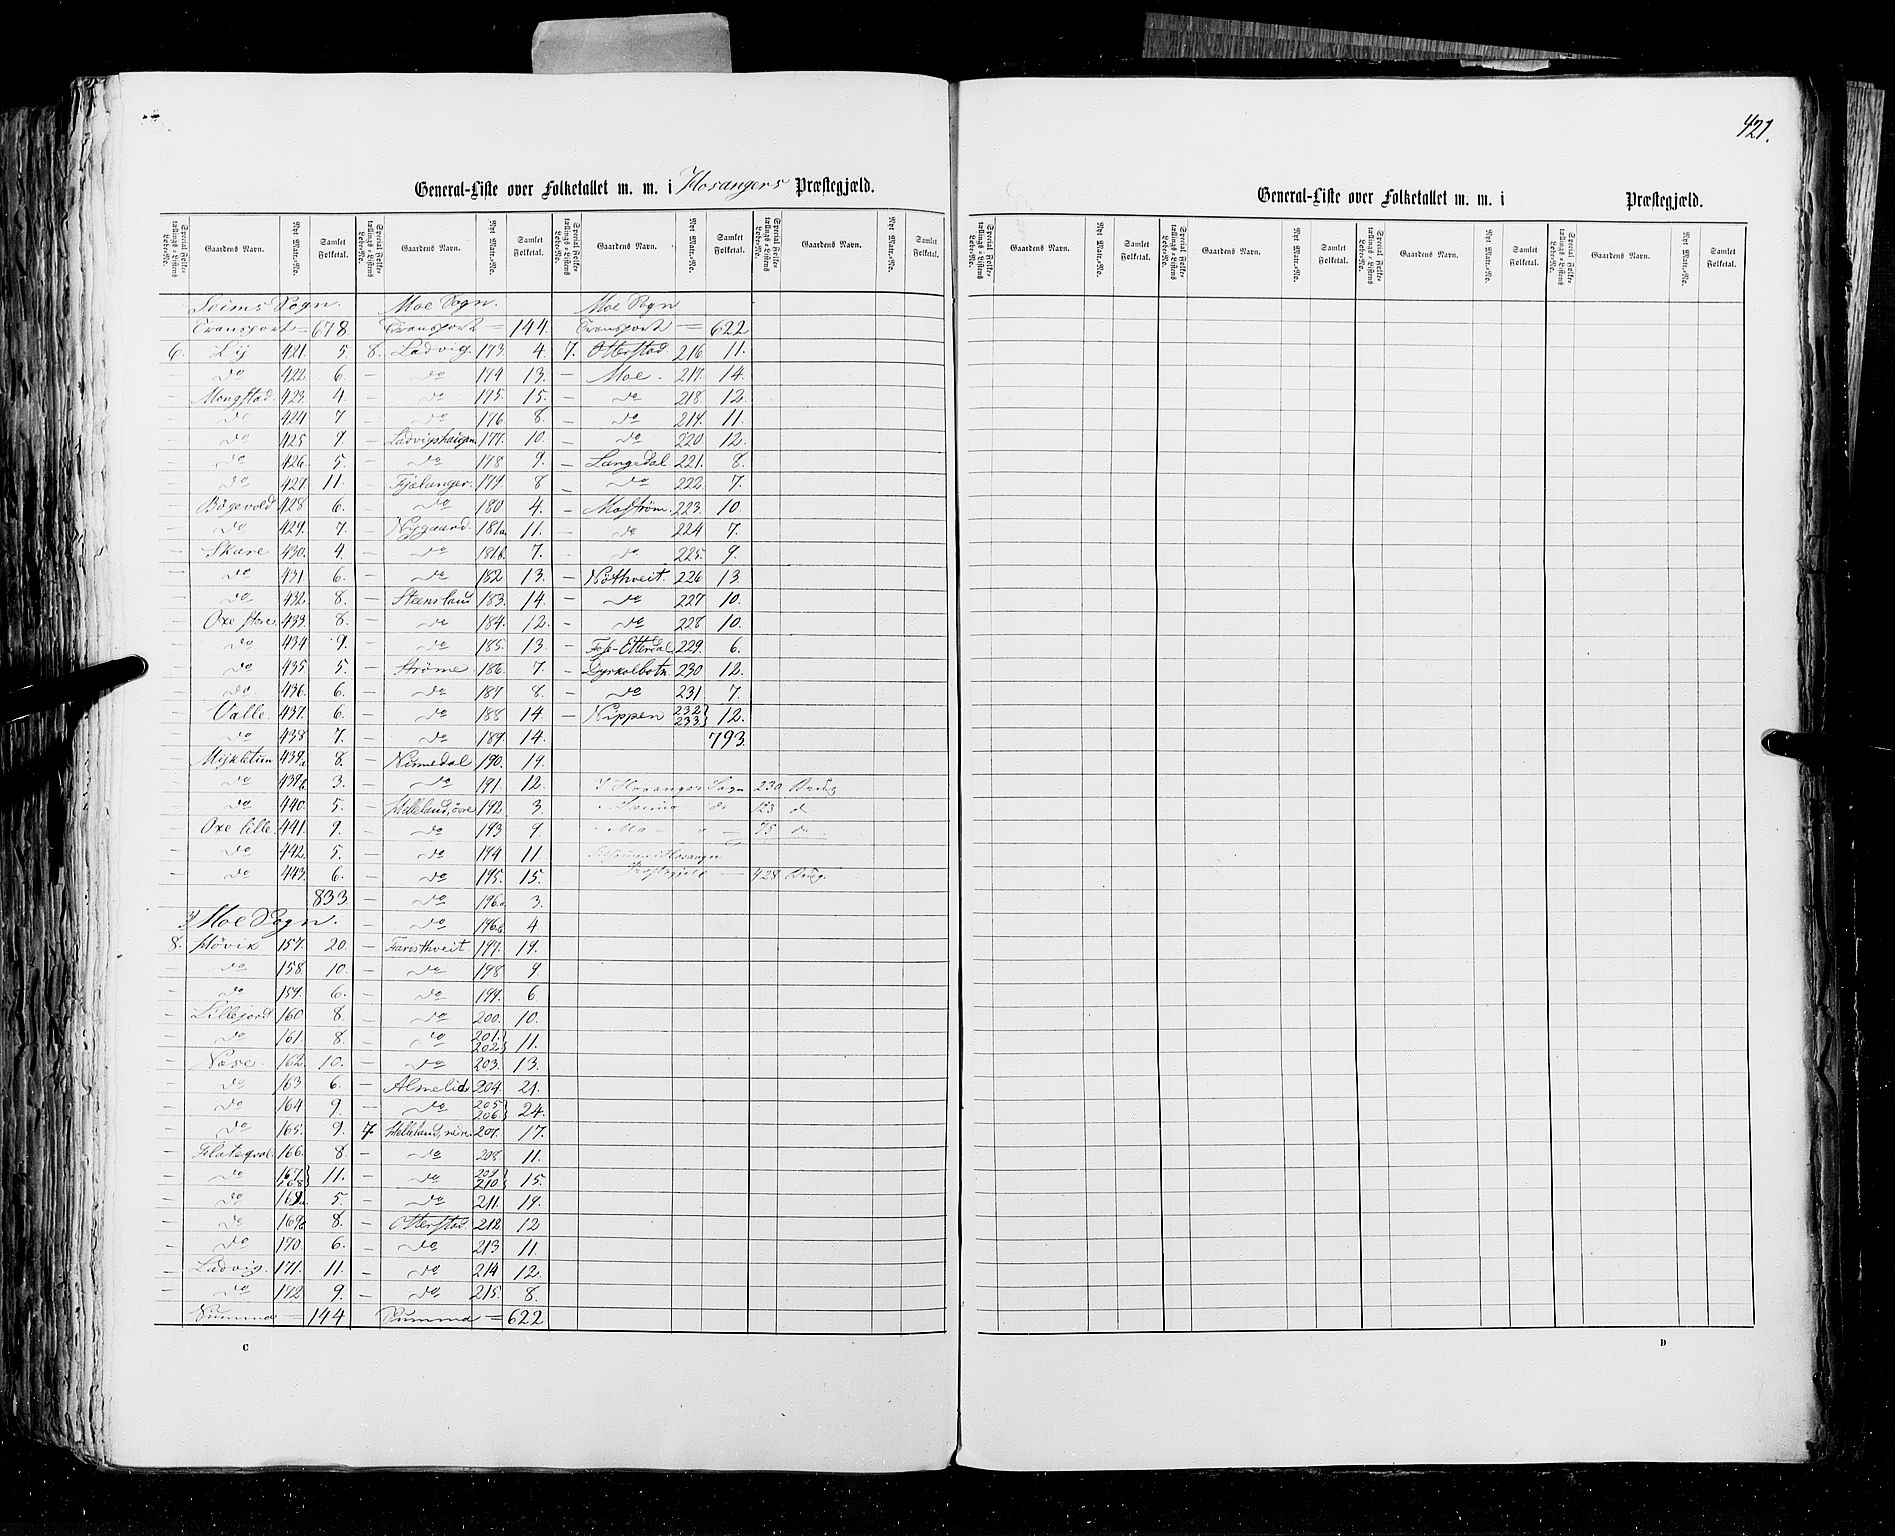 421.
General-Liste over Folketallet m. m. i Hosangers Præstegjæld.
Special Folketællings-Listens Løbe-No. Gaardens Navn. Nyt Matr.-No. Samlet Folketal.
Special Folketællings-Listens Løbe-No. Gaardens Navn. Nyt Matr.-No. Samlet Folketal.
Special Folketællings-Listens Løbe-No. Gaardens Navn. Nyt Matr.-No. Samlet Folketal.
Special Folketællings-Listens Løbe-No. Gaardens Navn. Nyt Matr.-No. Samlet Folketal.
Seims Sogn.
Transport = 678.
6. Lij 421. 5.
— do 422. 6.
— Mongstad. 423. 4.
— do 424 7
— do 425 9.
— do 426. 5.
— do 427. 11.
— Bøgevold 428 6.
— do 429. 7.
— Skare 430. 4.
— do 431 6.
— do 432. 8.
— Oxe store 433. 8.
— do 434 9.
— do 435 5.
— do 436. 6.
— Valle. 437. 6.
— do 438 7.
— Mykletun 439a 8.
— do 439b 3.
— do 440. 5.
— Oxe lille. 441. 9.
— do 442. 5.
— do 443. 6.
833.
Moe Sogn.
8. Høvik 157. 20.
— do 158. 10.
— do 159. 6.
— Lillejord 160 8.
— do 161. 8.
— Nøse. 162. 10.
— do 163 6.
— do 164 9.
— do 165. 9.
— Flateqval. 166. 8.
— do 167 168 } 11.
— do 169a 5
— do 169b 8.
— do 170. 6.
— Ladvig. 171. 11.
— do 172 9.
Summa = 144
Moe Sogn.
Transport = 144.
8. Ladvig. 173. 4.
— do 174 13.
— do 175. 15.
— do 176. 8.
— Ladvigshaugen 177. 10.
— do 178 9.
— Fjelanger. 179. 8
— do 180 4.
— Nygaard. 181a. 11.
— do 181b. 7.
— do 182 13.
— Steensland 183. 14.
— do 184. 12.
— do 185. 13
— Strøme. 186. 7.
— do 187 8.
— do 188 14
— do 189. 14.
— Nimedal 190. 19.
— do 191. 12.
— Helleland, øvre 192. 3
— do 193 9
— do 194 11
— do 195. 15.
— do 196a. 3.
— do 196b. 4
— Faristhveit. 197. 19.
— do 198 9.
— do 199. 6
— do 200. 10.
— do 201. 202. } 11.
— do 203. 13.
— Almelid 204. 21.
— do 205 206. } 24.
7. Helleland, nedre. 207. 17.
— do 208. 11.
— do 209 210 } 15.
— do 211. 19.
— Otterstad. 212. 12
— do 213 11.
— do 214 12.
— do 215. 8.
Summa = 622
Moe Sogn
Transport = 622
7. Otterstad. 216 11.
— Moe. 217. 14.
— do 218. 12.
— do 219. 11.
— do 220. 12.
— Langedal 221. 8.
— do 222. 7.
— Mostrøm. 223. 10.
— do 224 7.
— do 225. 9.
— Nøthveit. 226 13.
— do 227 10.
— do 228 10.
— Foss-Etterdal 229. 6.
— Dyrkolbotn. 230 12.
— do 231 7.
— Nippen 232 233 } 12.
793.
I Hosanger Sogn 230 Brug
" Seims do 123 d
" Mo — " — 75 d
Præstegjeld — 428 Brug.
C
General-Liste over Folketallet m. m. i Præstegjæld.
Special Folketællings-Listens Løbe-No. Gaardens Navn. Nyt Matr.-No. Samlet Folketal.
Special Folketællings-Listens Løbe-No. Gaardens Navn. Nyt Matr.-No. Samlet Folketal.
Special Folketællings-Listens Løbe-No. Gaardens Navn. Nyt Matr.-No. Samlet Folketal.
Special Folketællings-Listens Løbe-No. Gaardens Navn. Nyt Matr.-No. Samlet Folketal.
D